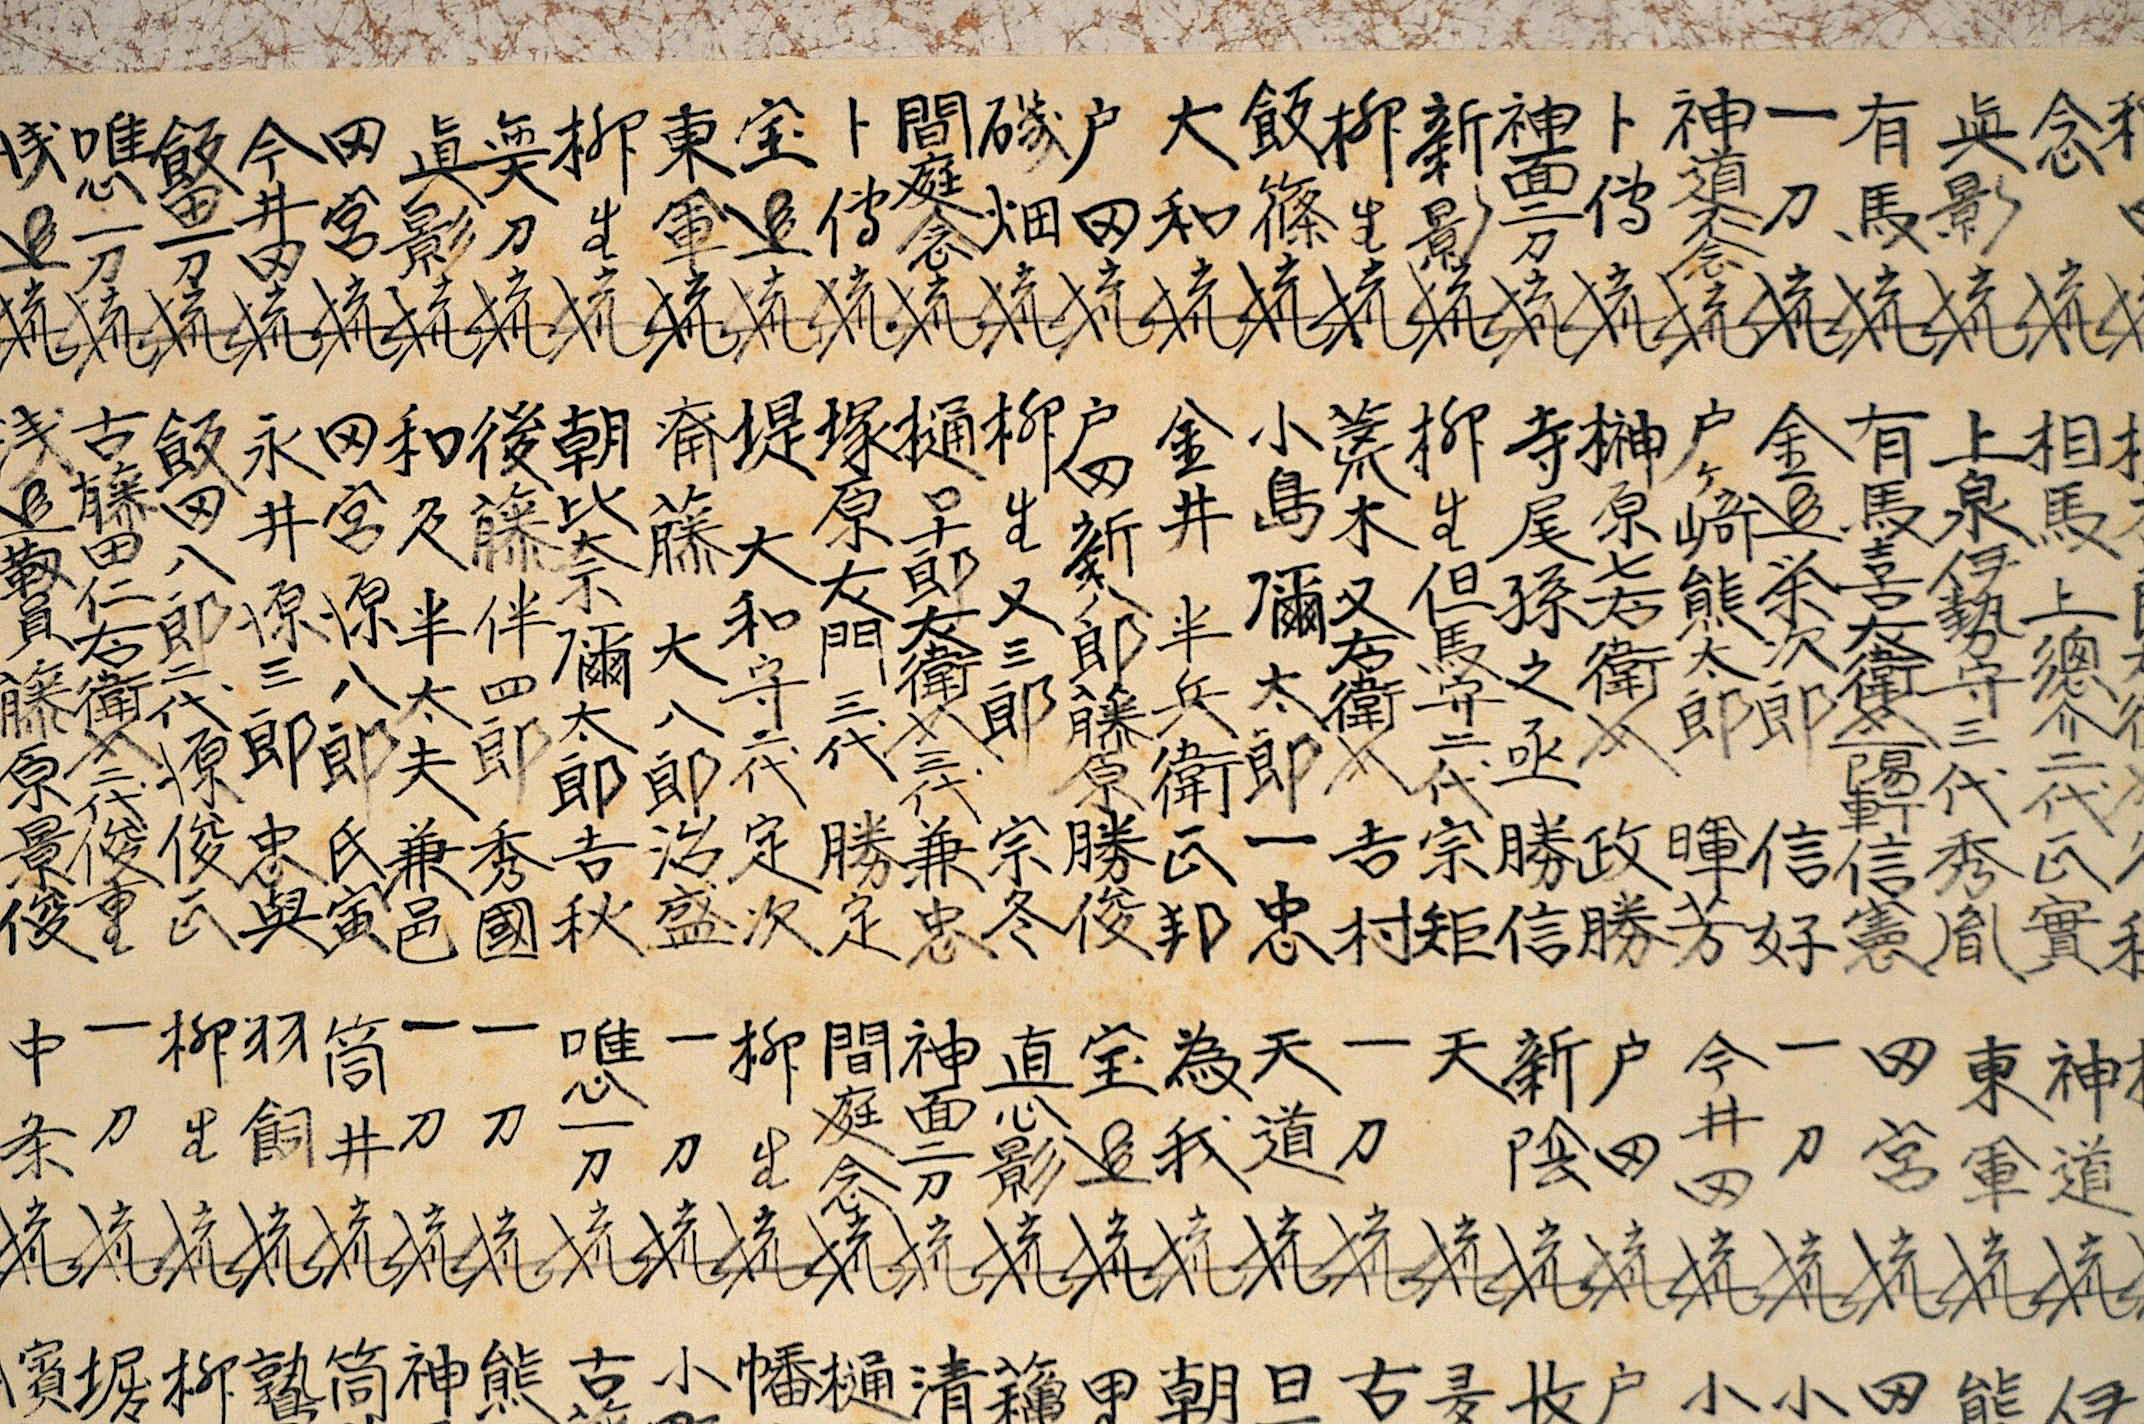 念流
眞影流
有馬流
一刀流
神道念流
卜傳流
神面二刀流
新影流
柳生流
飯篠流
大和流
戸田流
磯畑流
間庭念流
卜傳流
宝追流
東軍流
柳生流
奥刀流
眞影流
田宮流
今井田流
飯田一刀流
唯心一刀流
浅追流
相馬上總介二代正實
上泉伊勢守三代秀胤
有馬喜左衛門一陽軒信憲
金追栄次郎信好
戸ヶ﨑熊太郎暉芳
榊原七右衛門政勝
寺尾孫之丞勝信
柳生但馬守二代宗矩
荒木又右衛門吉村
小島彌太郎一忠
金井半兵衛正邦
戸田新八郎藤原勝俊
柳生又三郎宗冬
樋口十郎左衛門三代兼忠
塚原左門三代勝定
堤大和守六代定次
斎藤大八郎治盛
朝比奈彌太郎吉秋
後藤伴四郎秀國
和久半太夫兼邑
田宮源八郎氏寅
永井源三郎忠與
飯田八郎二代源俊正
古藤田仁右衛門二代俊重
浅追靱員藤原景俊
神道
東軍流
田宮流
一刀流
今井田流
戸田流
新陰流
天流
一刀流
天道流
為我流
宝追流
直心影流
神面二刀流
間庭念流
柳生流
一刀流
唯心一刀流
一刀流
一刀流
筒井流
羽飼流
柳生流
一刀流
中条流
伊
熊
田
小
小
戸
牧
古
朝
甲
清
樋
幡
小
古
熊
神
筒
柳
堀
濱